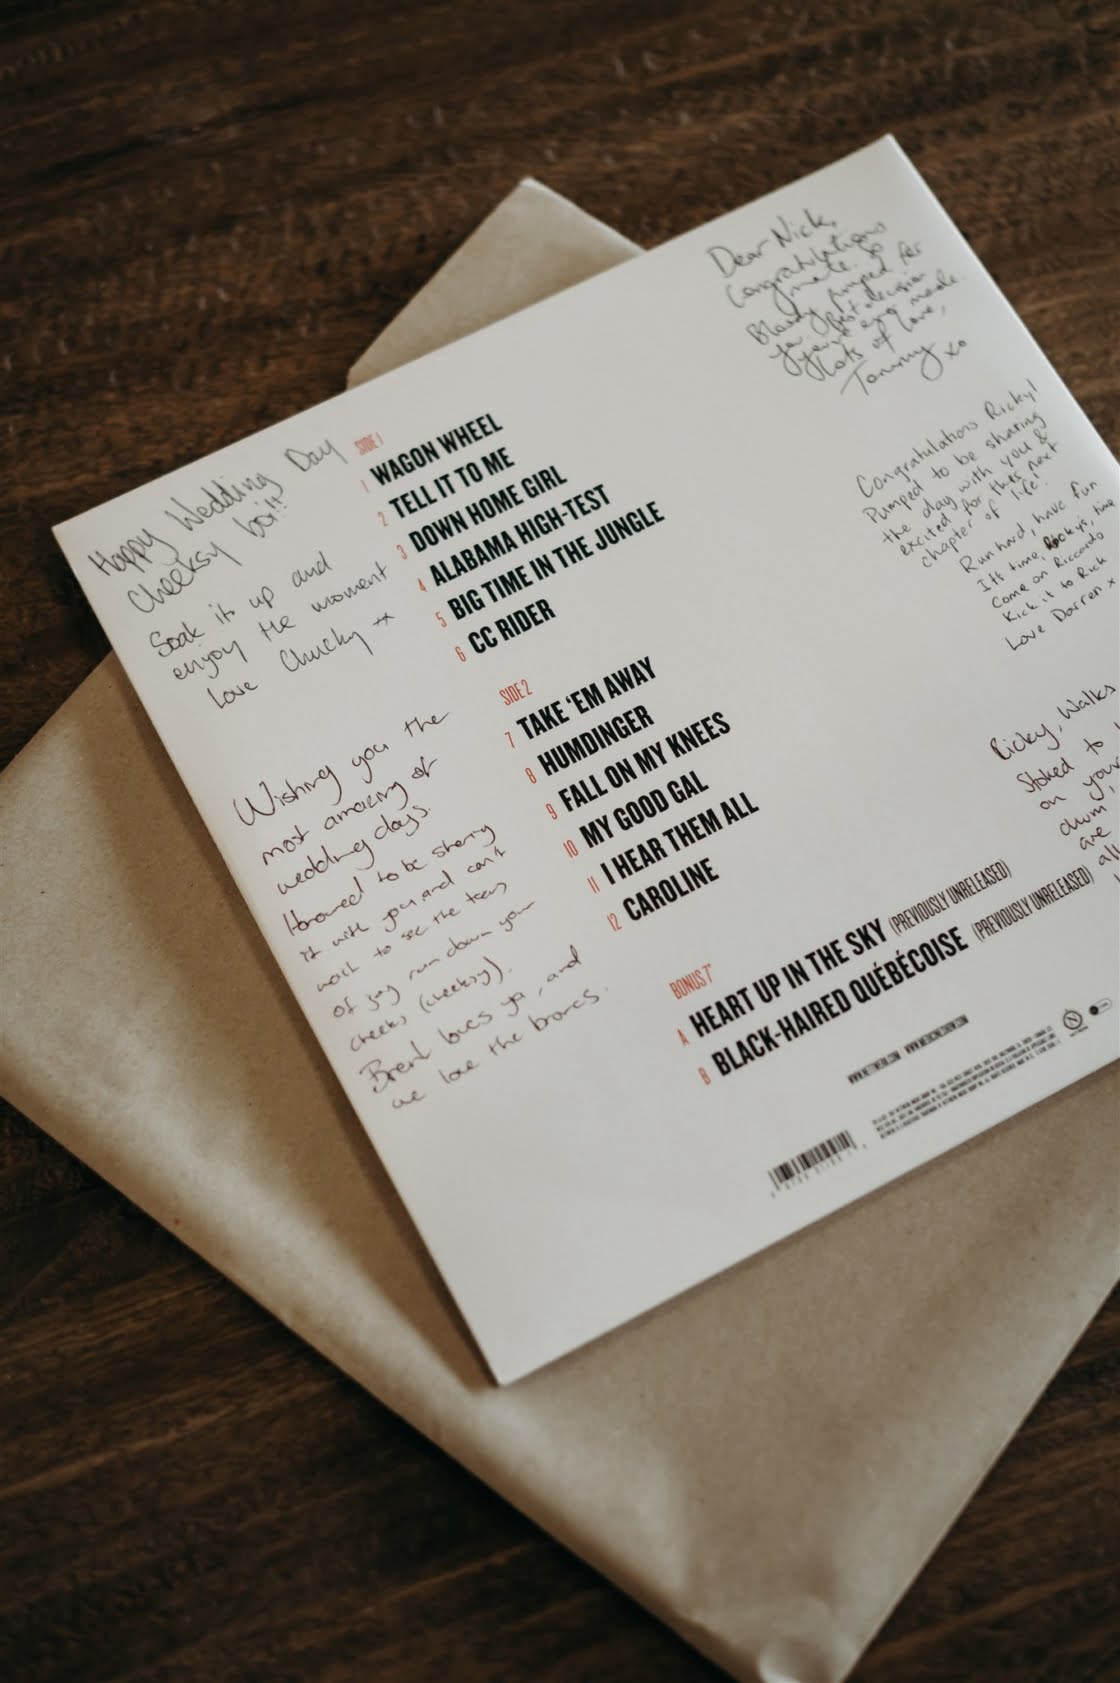 Happy Wedding Day
cheeksy boi!!
Soak it up and
enjoy the moment
love Chucky xx
Wishing you the
most amazing of
wedding days.
Honoured to be sharing
it with you and can't
wait to see the tears
of joy run down your
cheeks (cheeksy).
Brent loves ya, and
we love the
SIDE 1
1 WAGON WHEEL
2 TELL IT TO ME
3 DOWN HOME GIRL
4 ALABAMA HIGH-TEST
5 BIG TIME IN THE JUNGLE
6 CC RIDER
SIDE 2
7 TAKE 'EM AWAY
8 HUMDINGER
9 FALL ON MY KNEES
10 MY GOOD GAL
11 I HEAR THEM ALL
12 CAROLINE
BONUS 7"
A HEART UP IN THE SKY (PREVIOUSLY UNRELEASED)
B BLACK-HAIRED QUÉBÉCOISE (PREVIOUSLY UNRELEASED)
WWW.NETTWERK.COM
Dear Nick,
Congratulations
mate. So
Bloody pumped for
you best decision
you've ever made.
Lots of love,
Tommy xo
Congratulations Ricky!
Pumped to be sharing
the day with you &
excited for this next
chapter of life!
Run hard, have fun
It's time, Ricky's, time
Come on Riccardo
Kick it to Rick
Love Darren x
Ricky, Walks
Stoked to
on your
drum,
are